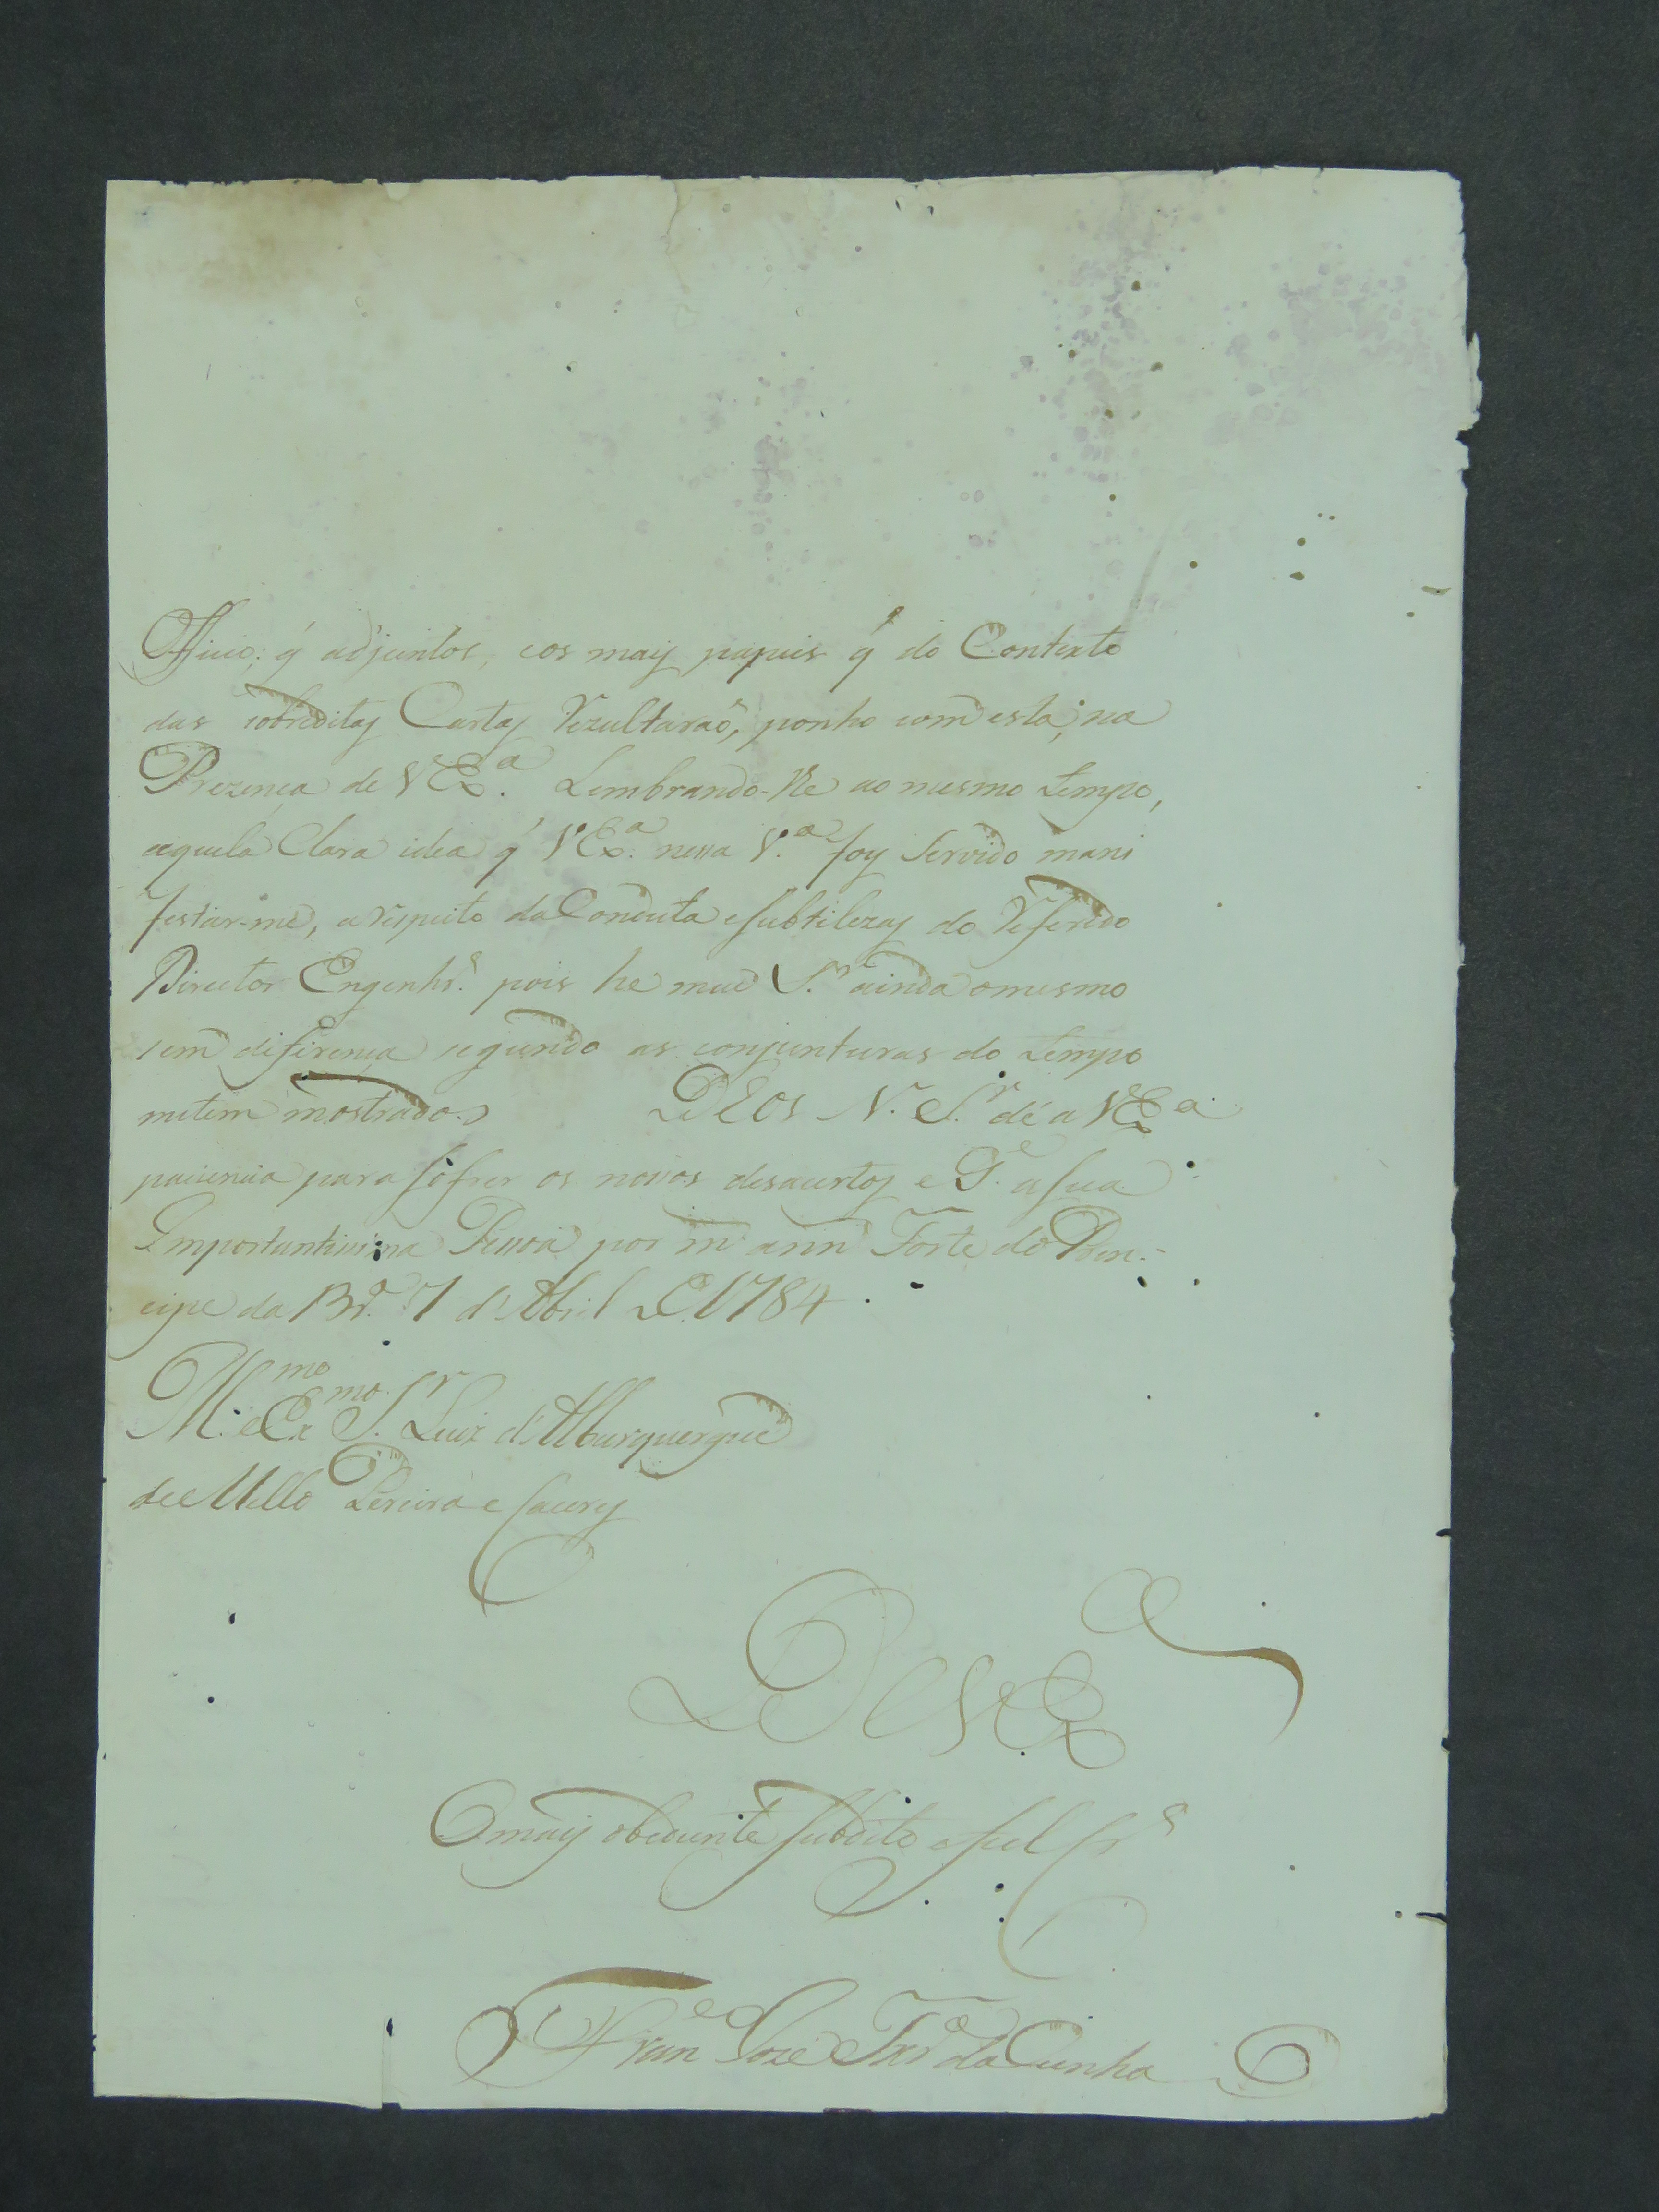 Officio; q̃ adjuntos, eos mais papeis q̃ do Contexto
das sobreditas Cartas Rezultaraõ, ponho com esta, na
Prezença de VEx.ª Lembrando-lhe ao mesmo tempo,
aquela Clara idea q̃ VEx.ª nessa V.ª foy Servido mani
festar-me, a respeito da Conduta e subtilezas do Referido
Director Engenhr.º pois he meu S.r ainda o mesmo
sem diferença segundo as conjunturas do tempo
metem mostrado.
DEOS N. S.r dé a VEx.ª
paciencia para sofrer os nossos desacertos e G.e a sua
Importantissima Pessoa por m̃ ann̄ Forte do Prin-
cipe da Br.ª 7 d'Abril de 1784
Ill.mo e Ex.mo S.r Luiz d'Alburquerque
de Mello Pereira e Caceres
De VEx.ª
O mais obediente subdito e fiel Cr.º
Fran.co Joze Teix.ra da Cunha